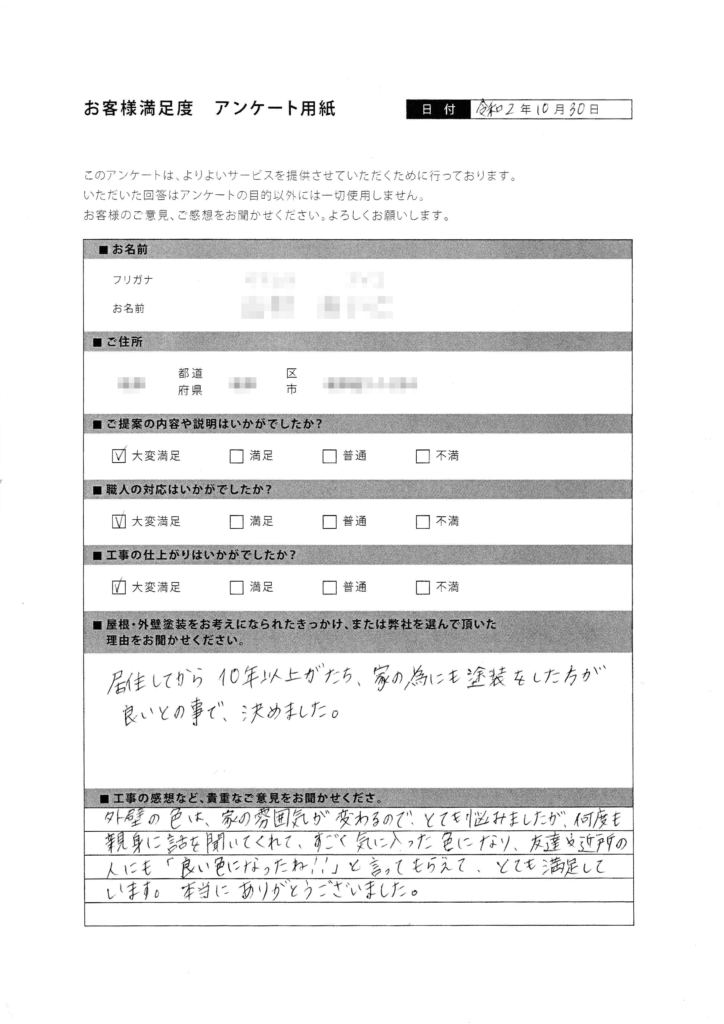 お客様満足度 アンケート用紙
日付 令和2年10月30日
このアンケートは、よりよいサービスを提供させていただくために行っております。
いただいた回答はアンケートの目的以外には一切使用しません。
お客様のご意見、ご感想をお聞かせください。よろしくお願いします。
■お名前
フリガナ
お名前
■ご住所
都道 区
府県 市
■ご提案の内容や説明はいかがでしたか?
☑大変満足 □満足 □普通 □不満
■職人の対応はいかがでしたか?
☑大変満足 □満足 □普通 □不満
■工事の仕上がりはいかがでしたか?
☑大変満足 □満足 □普通 □不満
■屋根・外壁塗装をお考えになられたきっかけ、または弊社を選んで頂いた
理由をお聞かせください。
居住してから10年以上がたち、家の為にも塗装をした方が
良いとの事で、決めました。
■工事の感想など、貴重なご意見をお聞かせくださ。
外壁の色は、家の雰囲気が変わるので、とても悩みましたが、何度も
親身に話を聞いてくれて、すごく気に入った色になり、友達や近所の
人にも「良い色になったね!!」と言ってもらえて、とても満足して
います。本当にありがとうございました。